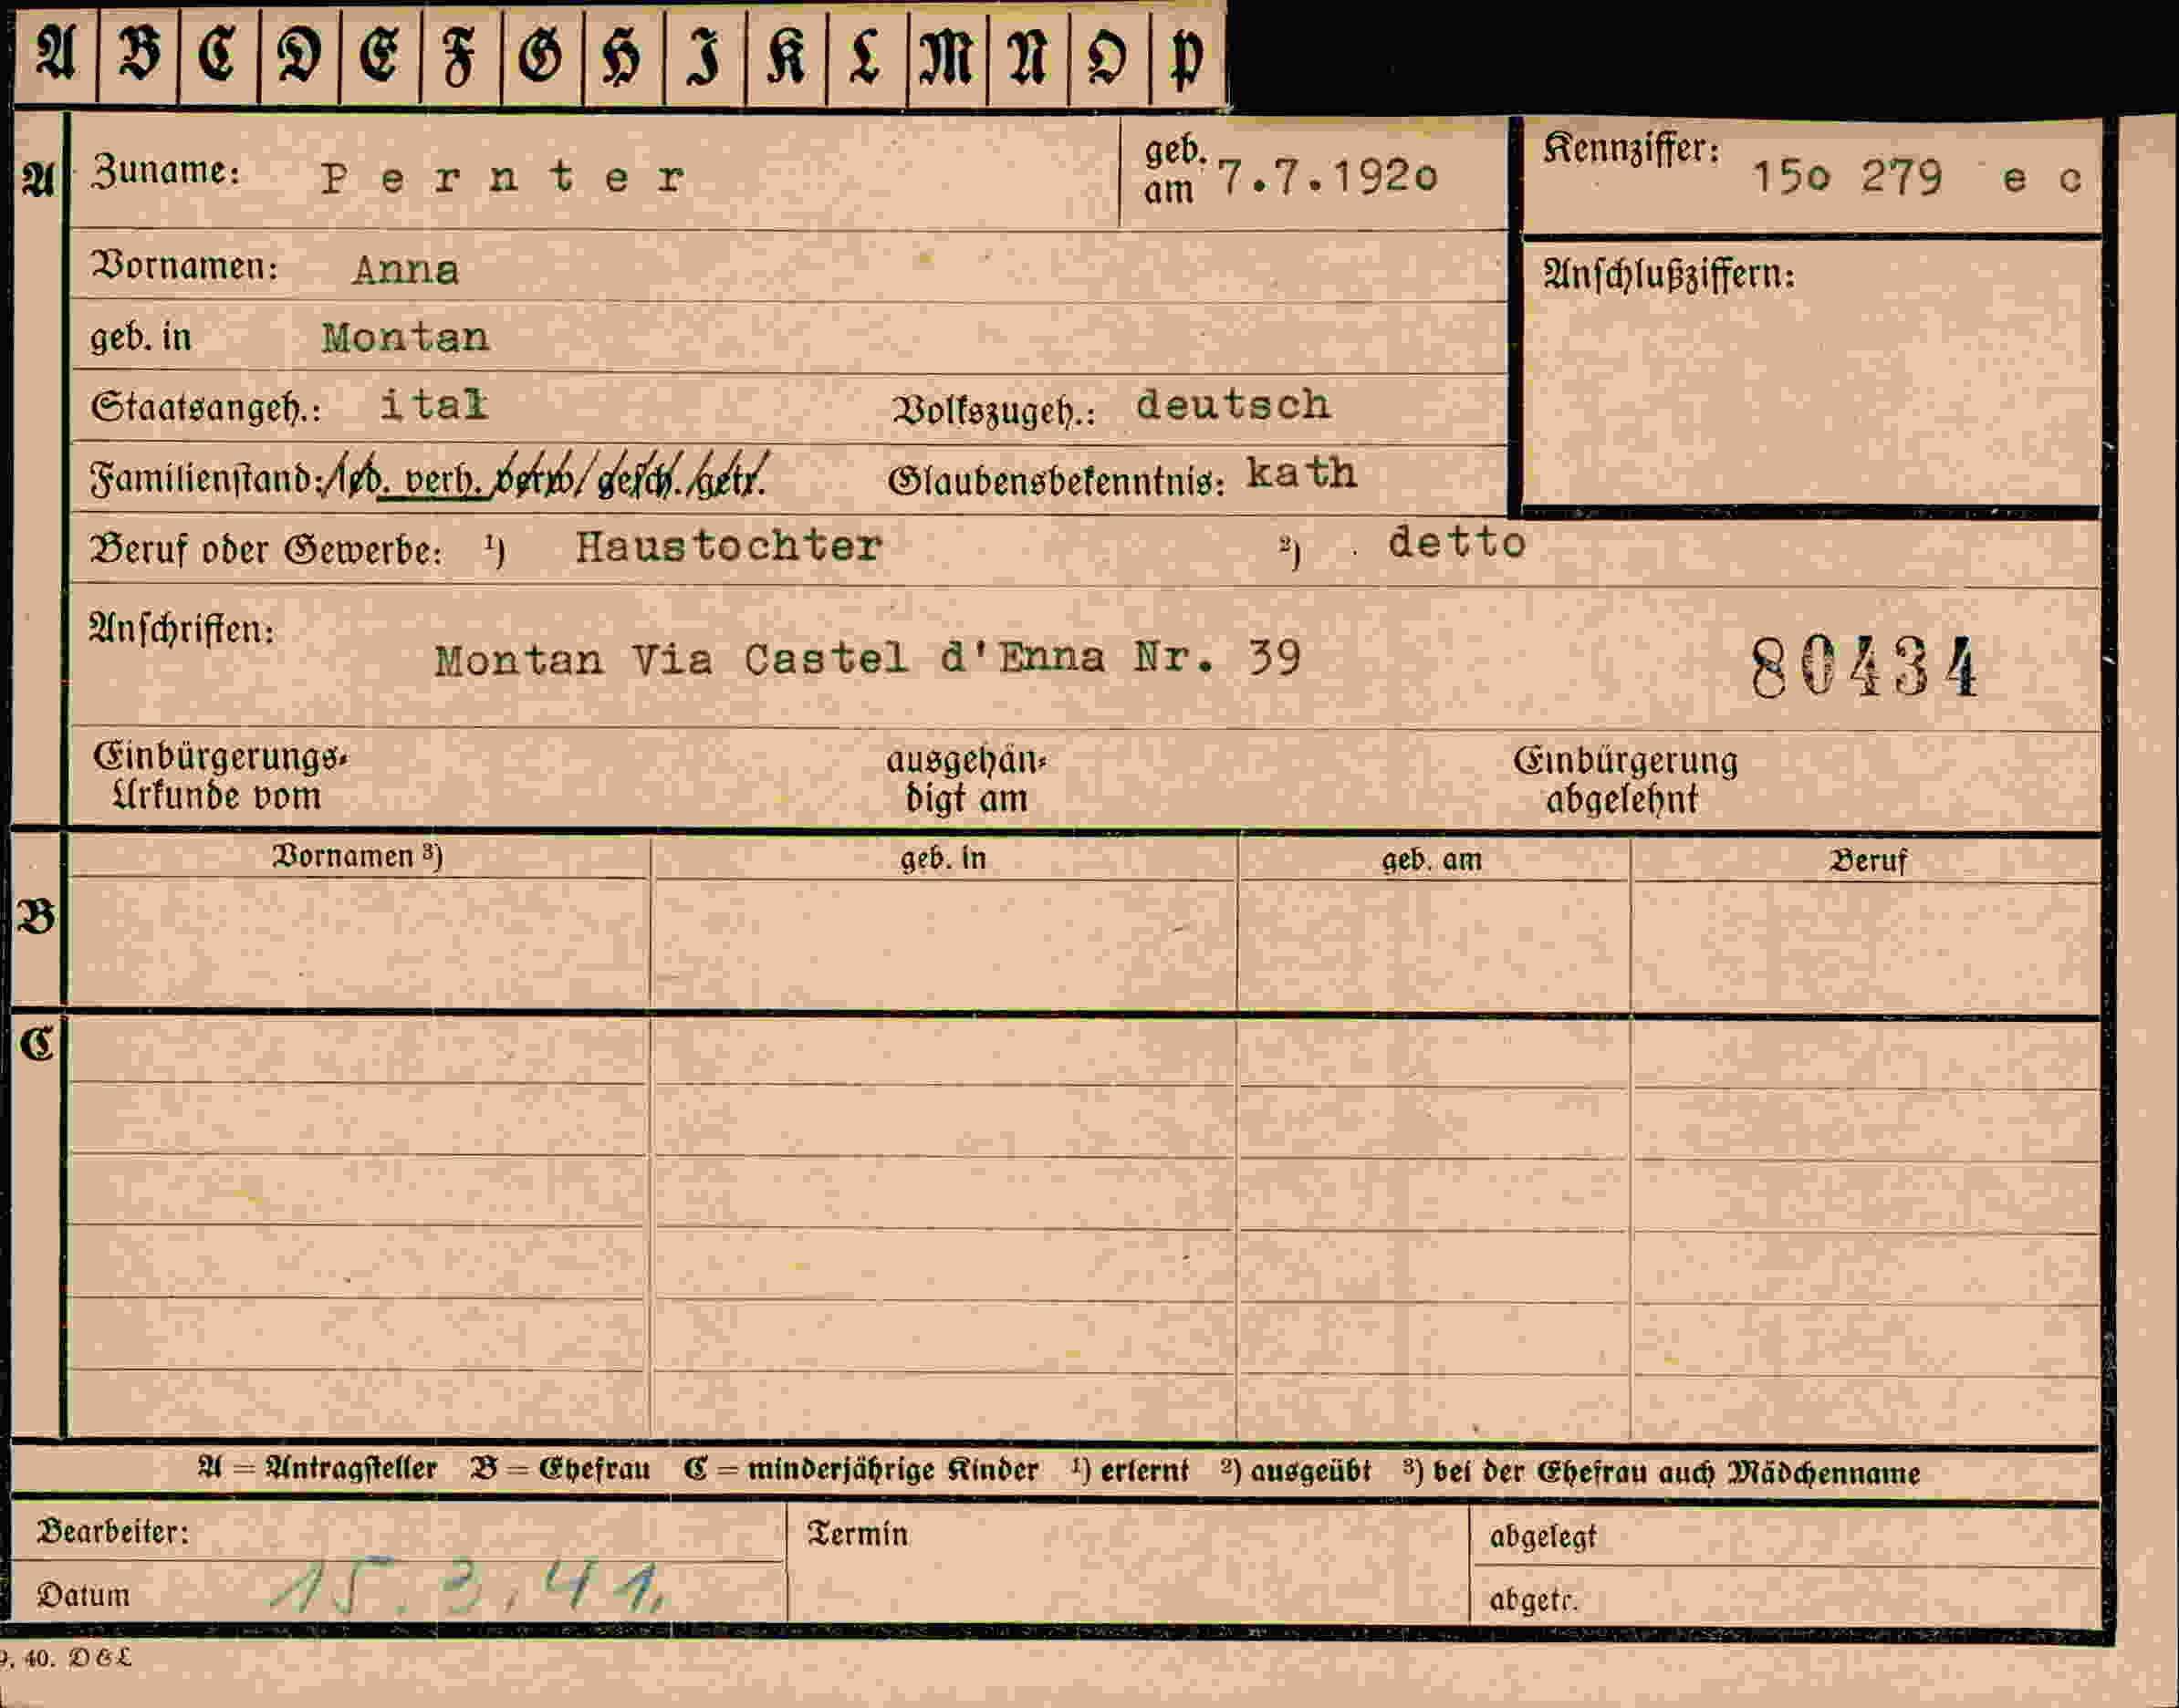 A B C D E F G H I K L M N O P
A Zuname: Pernter geb. am 7.7.1920 Kennziffer: 15o 279 e c
Vornamen: Anna Anschlußziffern:
geb. in Montan
Staatsangeh.: ital Volkszugeh.: deutsch
Familienstand: led. verh. verw. gesch. getr. Glaubensbekenntnis: kath
Beruf oder Gewerbe: 1) Haustochter 2) detto
Anschriften:
Montan Via Castel d'Enna Nr. 39 80434
Einbürgerungs- ausgehän- Einbürgerung
Urkunde vom digt am abgelehnt
Vornamen 3) geb. in geb. am Beruf
B
C
A = Antragsteller B = Ehefrau C = minderjährige Kinder 1) erlernt 2) ausgeübt 3) bei der Ehefrau auch Mädchenname
Bearbeiter: Termin abgelegt
Datum 15.3.41. abgetr.
9. 40. D&L